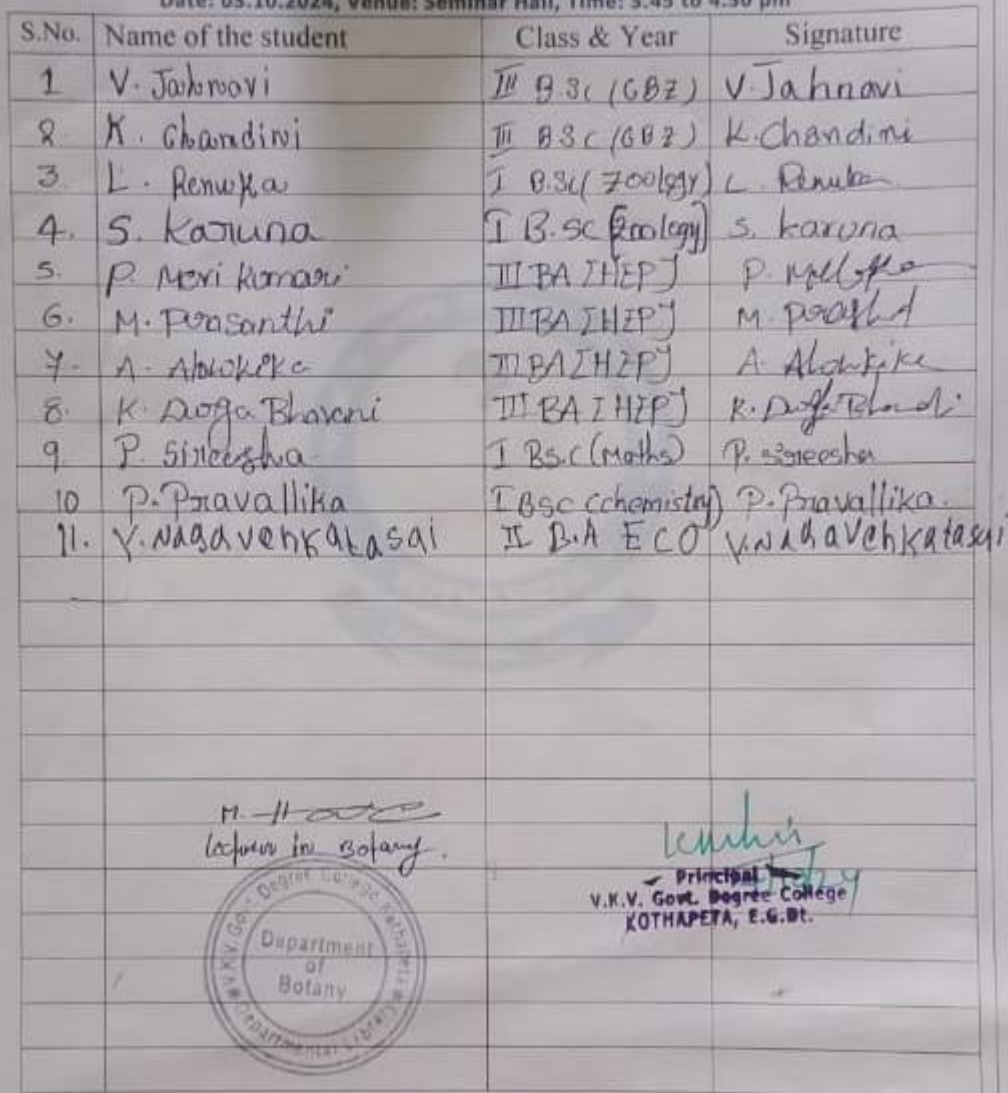 Date: 03.10.2024, Venue: Seminar Hall, Time: 3.45 to 4.30 pm
S.No. Name of the student Class & Year Signature
1 V. Jahnavi III B.Sc (GBZ) V. Jahnavi
2. K. Chandini III B.Sc (GBZ) K. Chandini
3 L. Renuka I B.Sc (Zoology) L. Renuka
4. S. Karuna I B.SC [Zoology] S. Karuna
5. P. Meri Kumari III BA [HEP] P.
6. M. Prasanthi III BA [HEP] M.
7. A. Alowkika III BA [HEP] A. Alowkika
8. K. Durga Bhavani III BA [HEP] K. Durga
9 P. Sireesha I B.S.C (Maths) P. Sireesha
10 P. Pravallika I BSC (chemistry) P. Pravallika.
11. V. Nagavenkatasai II B.A ECO V. Nagavenkatasai
M.
Lecturer in Botany.
Principal
V.K.V. Govt. Degree College
KOTHAPETA, E.G.Dt.
V.K.V. Govt. Degree College Kothapeta
Department
of
Botany
Departmental Library